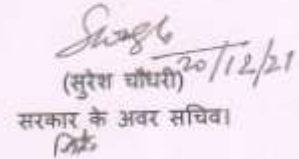 20/12/21
(सुरेश चौधरी)
सरकार के अवर सचिव।